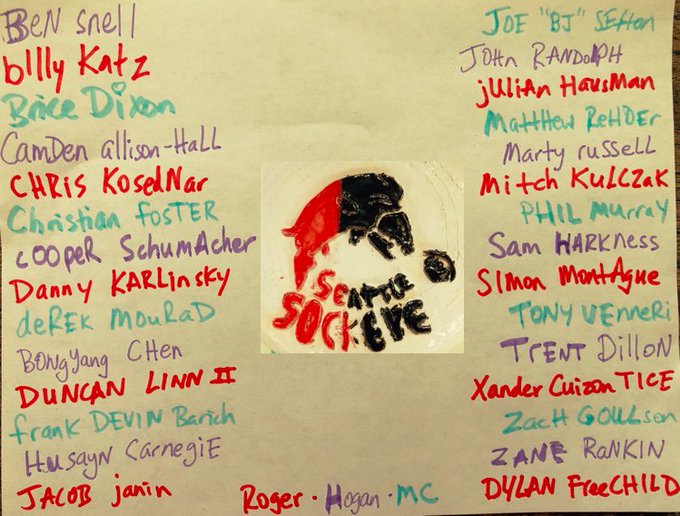 BeN snell
bIlly Katz
Brice Dixon
CamDen allison-HaLL
CHRis KoselNar
Christian FOSTER
cOOpeR SchumAcher
Danny KARLinsky
deREK mouRaD
BONgYang CHen
DUNCAN LINN II
frank DEVIN Barich
Husayn CarnegiE
JACOB janin
SEATTLE
SOCKEYE
Roger · Hogan · MC
JOE "BJ" SEfton
JOHn RANDOLPH
jULiAn HausMan
MattHew ReHDEr
Marty russell
Mitch KULCZAK
PHIL MurraY
Sam HARKNESS
SImon MontAgue
TONY VEnneRi
TRENT DillON
Xander Cuizon TICE
ZacH GOULson
ZANE RaNKIN
DYLAN FreeCHILD